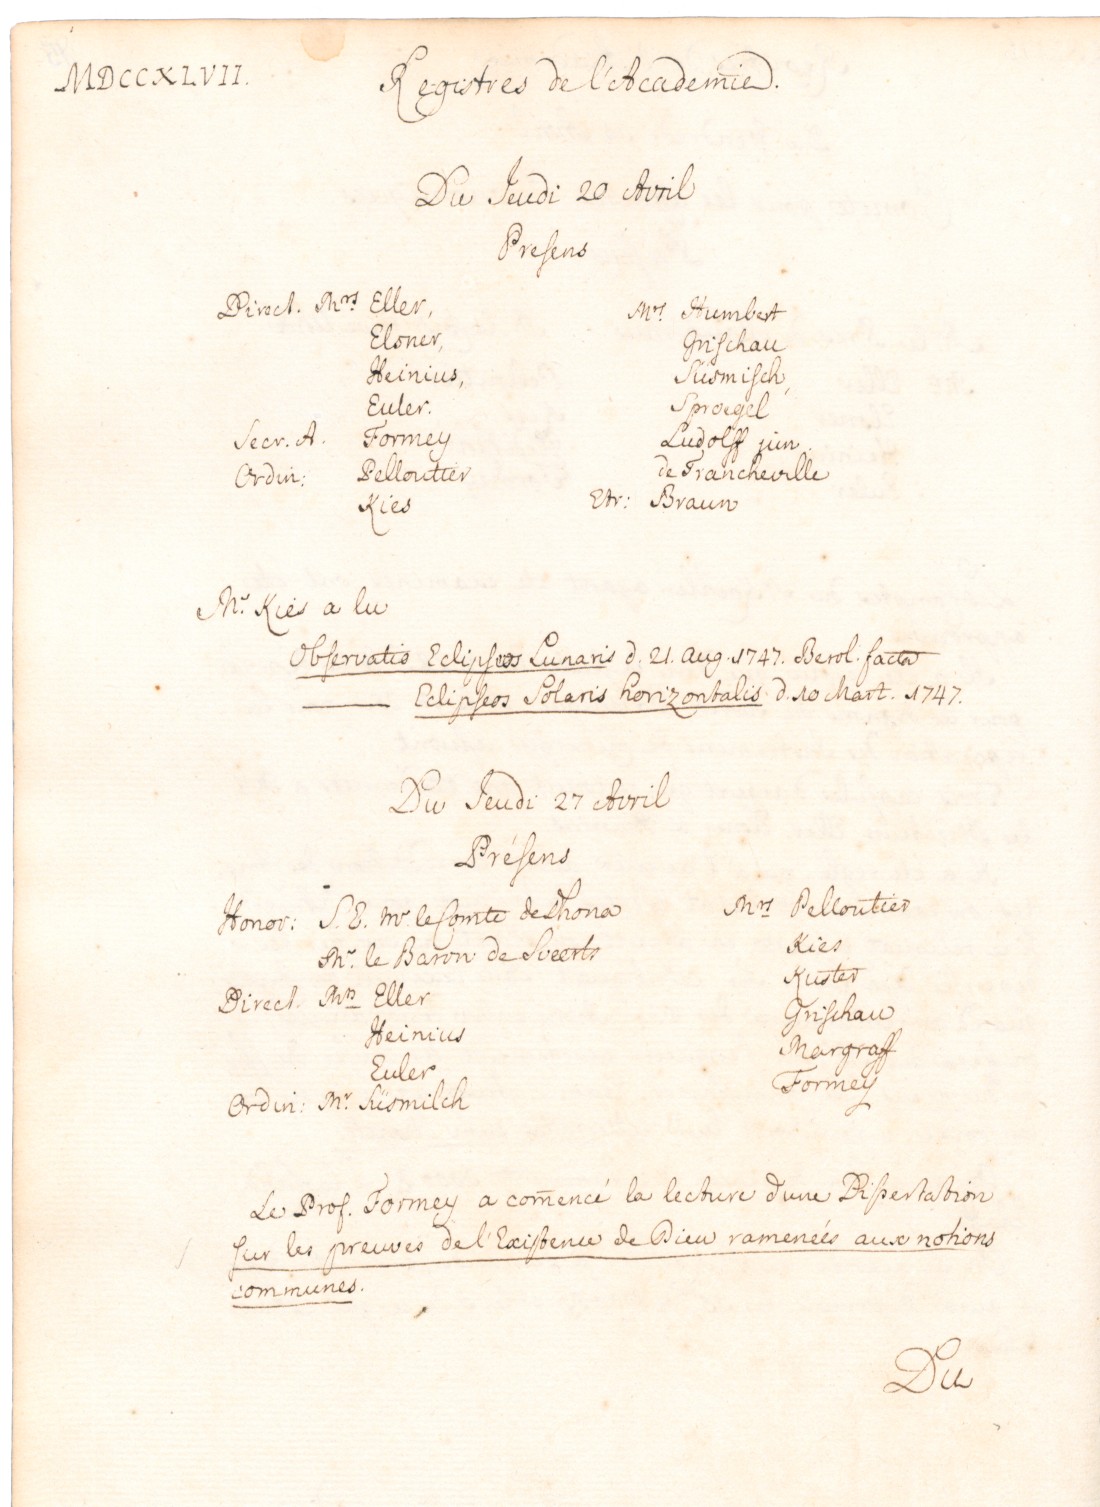 MDCCXLVII.
Registres de l'Academie.
Du Jeudi 20 Avril
Presens
Direct. Mrs Eller,
Elsner,
Heinius,
Euler.
Secr. A. Formey
Ordin: Pelloutier
Kies
Mrs Humbert
Grischau
Süsmilch,
Sproegel
Ludolff jun.
de Francheville
Etr: Braun
Mr. Kies a lu
Observatio Eclipseos Lunaris d. 21. Aug. 1747. Berol. facta
——— Eclipseos Solaris horizontalis d. 10 Mart. 1747.
Du Jeudi 27 Avril
Présens
Honor: S. E. Mr. le Comte de Dhona
Mr. le Baron de Sveerts
Direct. Mrs Eller
Heinius
Euler
Ordin: Mr Süsmilch
Mrs Pelloutier
Kies
Kuster
Grischau
Margraff
Formey
Le Prof. Formey a com̄encé la lecture d'une Dissertation
sur les preuves de l'Existence de Dieu rameneés aux notions
communes.
Du